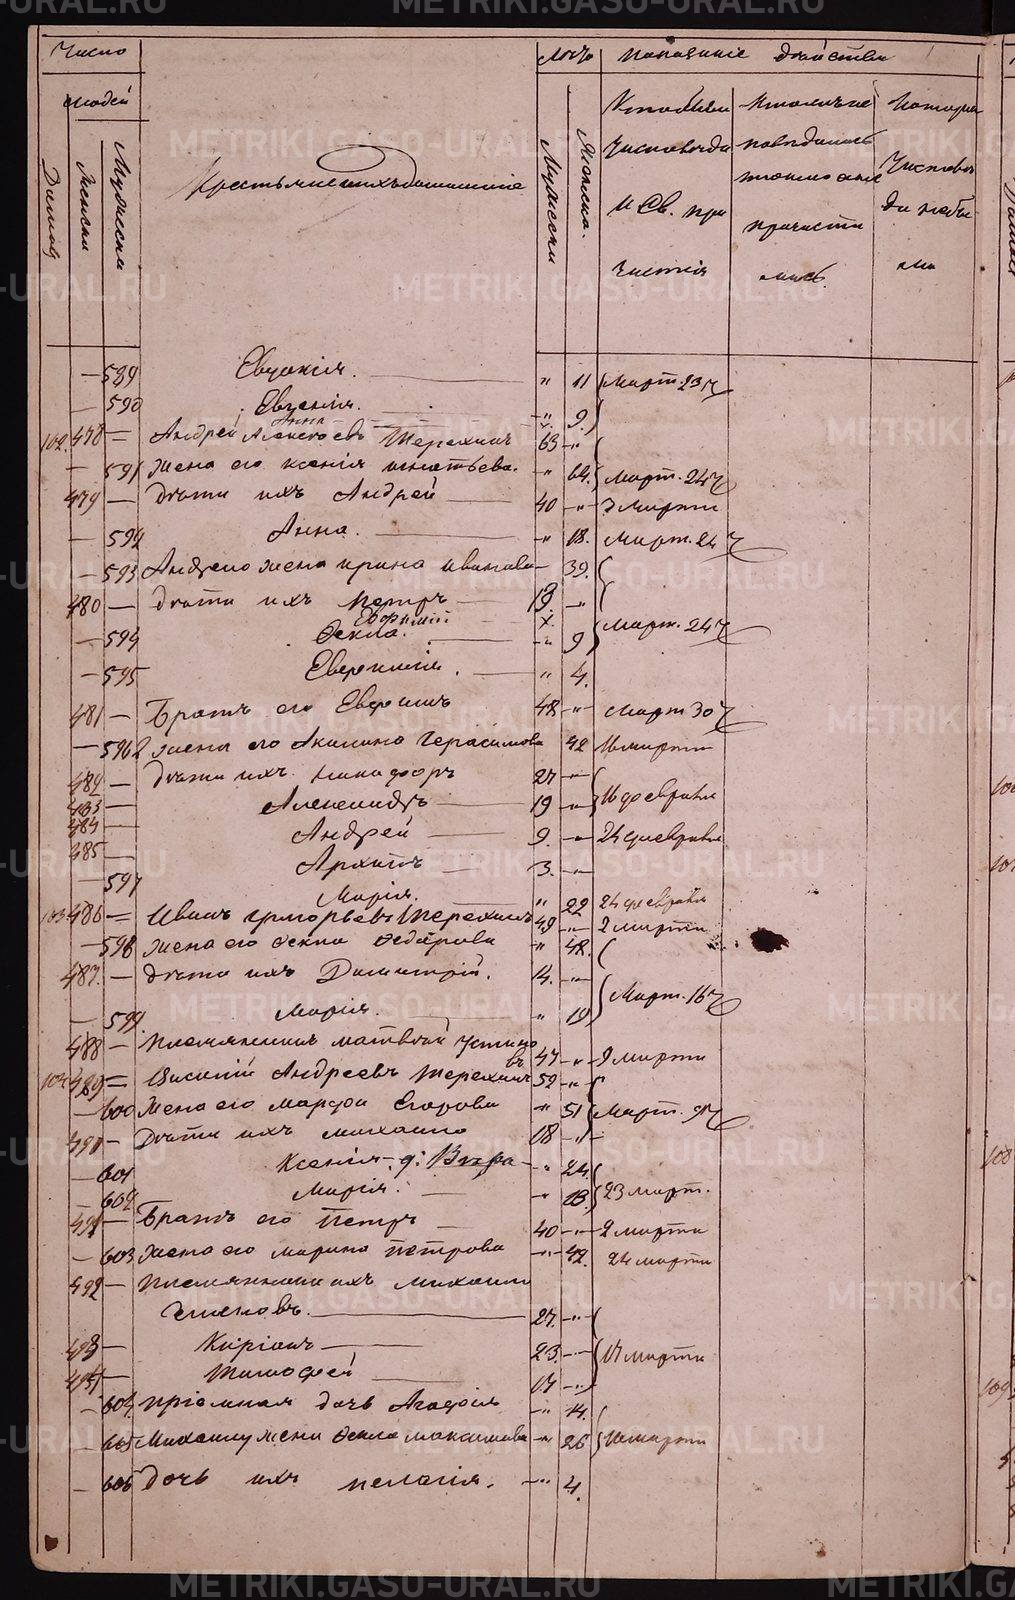 Число
людей
Дворовъ
Женска
Мужеска
Крестьяне и ихъ домашніе
Лѣта
Мужеска
Женска.
Показаніе дѣйства
Кто были
у исповѣди
и Св. При
частія
Кто исповѣ
дались
а не
причасти
лись.
Которые
у исповѣ
ди не бы
ли
— 589 Евдокія. — " 11 Март. 23
— 590 Евгенія. — " 9.
Анна
102. 478 — Андрей Алексѣевъ Терехинъ 63 "
— 591 Жена его Ксенія Игнатьева. " 64. Март. 24
479 — Дѣти ихъ Андрей — 40 " 9 марта
— 592 Анна. — " 18. Март. 24
— 593 Андрею жена Ирина Иванова — 39.
480 — Дѣти ихъ Петръ — 13. "
Евфимій х.
— 594 Ѳекла. — " 9 Март. 24
— 595 Евгенія. — " 4.
481 — Братъ его Ефремъ 48 " Март 30
— 596 Жена его Акилина Герасимова 42 16 марта
482 — Дѣти ихъ Никифоръ 27 "
483 — Александръ — 19 " 16 февраля
484 — Андрей — 9. " 24 февраля
485 — Архипъ — 3. "
— 597 Марія. " 22 24 февраля
103. 486 — Иванъ Григорьевъ Терехинъ 49 " 2 марта
— 598 Жена его Ѳекла Ѳедорова " 48.
487. — Дѣти ихъ Димитрій. 14. "
— 599. Марія. — " 19 Март. 16
488 — Племянникъ Матвѣй Устино
въ 47 " 9 марта
104 489 — Василій Андреевъ Терехинъ 52 "
— 600 Жена его Марфа Егорова " 51 Март. 9
490 — Дѣти ихъ Михаилъ 18 "
— 601 Ксенія д: Вѣра " 24.
— 602 Марія. — " 13. 23 март.
491 — Братъ его Петръ — 40 — 2 марта
— 603 Жена его Марина Петрова " 42. 24 марта
492 — Племянники ихъ Михаилъ
Семеновъ. — 27. "
493 — Киріанъ — 23. — 17 марта
494 — Тимофей — 17 "
— 604. Пріемная дочь Агафія " 14.
— 605 Михаилу жена Ѳекла Максимова " 26 10 марта
— 606 Дочь ихъ Пелагія. " 4.
METRIKI.GASO-URAL.RU